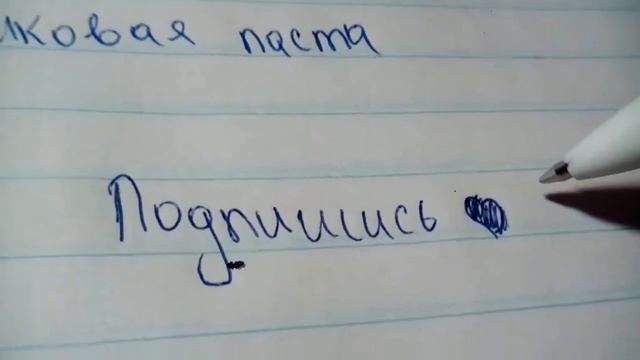 лковая паста
Подпишись